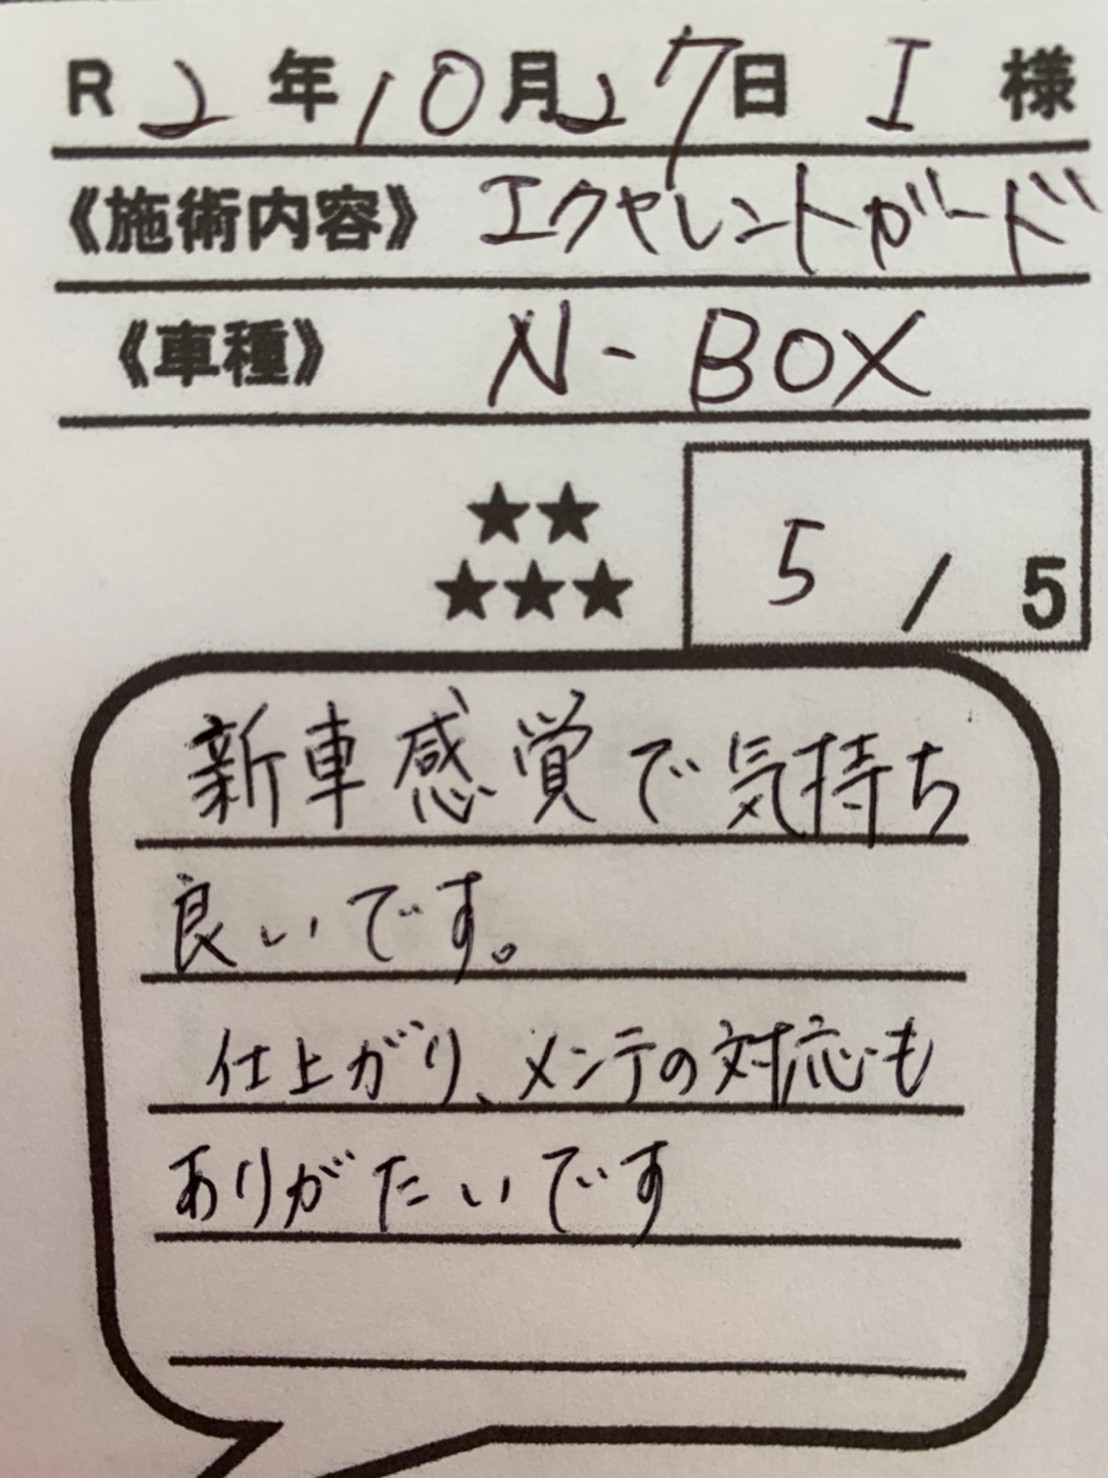 R 2年10月27日 I 様
《施術内容》 エクセレントガード
《車種》 N-BOX
★★
★★★
5/5
新車感覚で気持ち
良いです。
仕上がり、メンテの対応も
ありがたいです